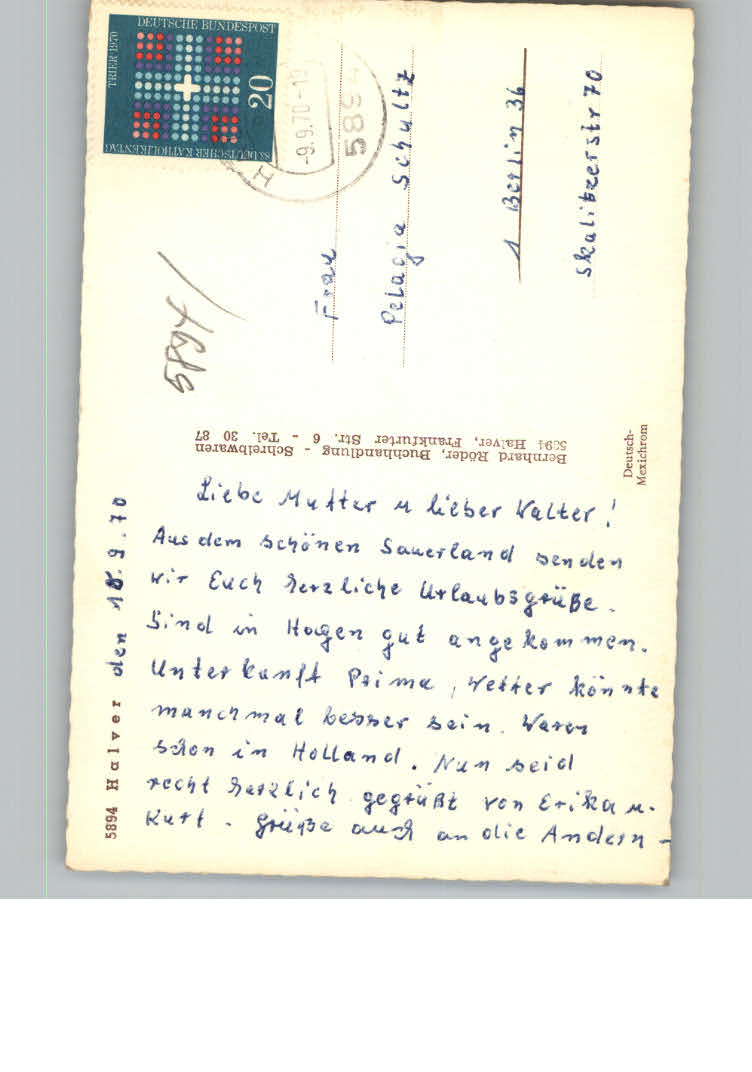 DEUTSCHE BUNDESPOST
TRIER 1970
20
83. DEUTSCHER KATHOLIKENTAG
-9.9.70-
5894
H
5894
Frau
Pelagia Schultz
1 Berlin 36
Skalitzerstr 70
Bernhard Röder, Buchhandlung - Schreibwaren
5894 Halver, Frankfurter Str. 6 - Tel. 30 87
Deutsch-
Mexichrom
5894 Halver den 18.9.70
Liebe Mutter u lieber Walter!
Aus dem schönen Sauerland senden
wir Euch herzliche Urlaubsgrüße.
Sind in Hagen gut angekommen.
Unterkunft Prima, Wetter könnte
manchmal besser sein. Waren
schon in Holland. Nun seid
recht herzlich gegrüßt von Erika u.
Kurt. Grüße auch an die Andern-